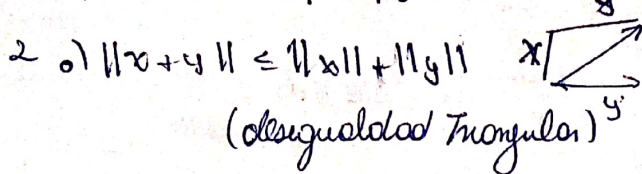 y
2 o) ||x+y|| ≤ ||x|| + ||y|| x
y
(desigualdad Triangular)